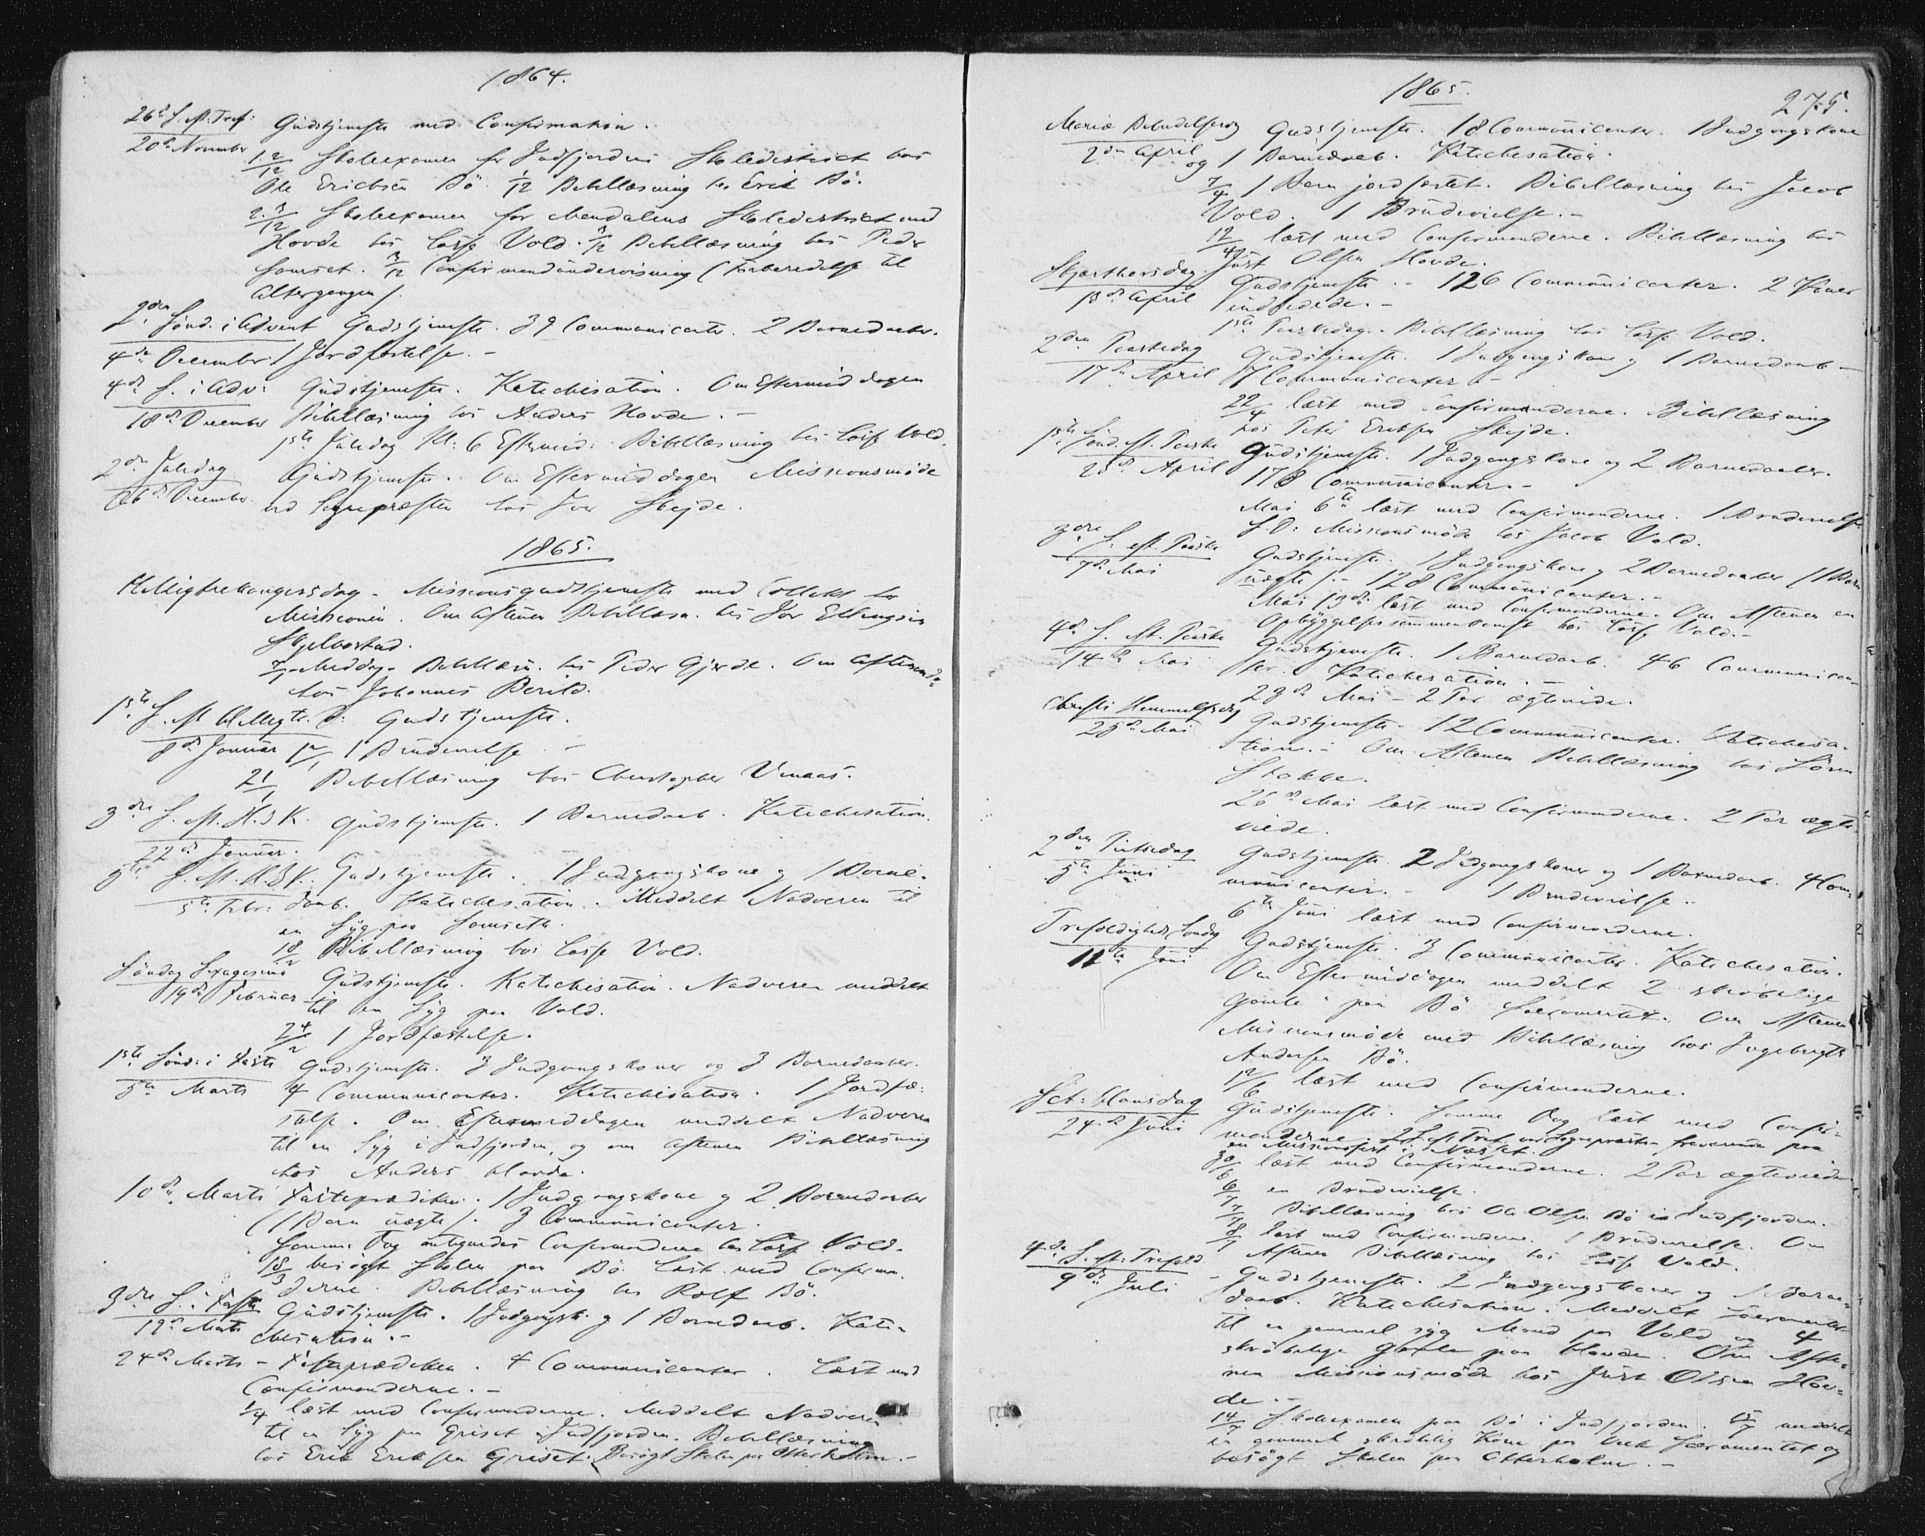 1864.
26de S. eft. Tref: Gudstjeneste med Confirmation.
20de November
1.2/12 Skoleexamen for Indfjordens Skoledistrict hos
Ole Ericksen Bö. 1/12 Bibellæsning hos Erik Bö.
2.3/12 Skoleexamen for Skoledistrict med
Hovde hos Vold. 3/12 Bibellæsning hos Peder
3/12 Confirmandundervisning (Forberedelse til
Altergangen).
2den Sönd. i Advent Gudstjeneste. 39 Communicanter. 2 Barnedaab.
4de December 1 Jordfæstelse. -
4de S. i Adv: Gudstjeneste. Katechisation. Om Eftermiddagen
18de December Bibellæsning hos Anders Hovde. -
1ste Juledag Kl: 6 Eftermid: Bibellæsning hos Vold.
2den Juledag Gudstjeneste. Om Eftermiddagen Missionsmöde
26de December ved Sognepræsten hos Iver Skejde.
1865.
Helligtrekongersdag - Missionsgudstjeneste med Collekt for
Missionen. Om Aftenen Bibellæsn. hos
7/1 Middag. Bibellæsn. hos Peder Gjerde. Om Aftenen do
hos Johannes
1ste S. eft. Helligtr. D: Gudstjeneste.
8de Januar 1 Brudevielse. -
21/1 Bibellæsning hos Christopher Venaas.
3die S. eft. H.3K. Gudstjeneste. 1 Barnedaab. Katechisation.
22de Januar.
5te S. eft. H.3K. Gudstjeneste. 1 Indgangskone og 1 Barne-
5te Febr: daab. Katechisation. Meddelt Nadveren til
en Syg paa
18/2 Bibellæsning hos Vold.
Söndag Sexagesima Gudstjeneste. Katechisation. Nadveren meddelt
19de Februar til en Syg paa Vold.
24/2 1 Jordfæstelse.
1ste Sönd: i Faste Gudstjeneste. 3 Indgangskoner og 3 Barnedaaber.
5te Marts 4 Communicanter. Katechisation. 1 Jordfæ-
stelse. Om Eftermiddagen meddelt Nadveren
til en Syg i Indfjorden, og om Aftenen Bibellæsning
hos Anders Hovde.
10de Marts Fasteprædiken. 1 Indgangskone og 2 Barnedaaber
(1 Barn uægte). 3 Communicanter.
Samme Dag Confirmanderne hos Vold.
18/3 besögt Skolen paa Bö. Læst med Confirman-
derne. Bibellæsning hos Rolf Bö.
3die S. i Faste Gudstjeneste. 1 Indgangsk. og 1 Barnedaab. Kate-
19de Marts chisation. -
24de Marts - Fasteprædiken. 4 Communicanter. Læst med
Confirmanderne. -
1/4 læst med Confirmanderne. Meddelt Nadveren
til en Syg paa Griset i Indfjorden. Bibellæsning
hos Erik Eriksen Griset. Besögt Skolen paa Otterholm. -
1865.
275.
Mariæ Bebudelsesdag Gudstjeneste. 18 Communicanter. 1 Indgangskone
2den April og 1 Barnedaab. Katechisation.
7/4 1 Barn jordfæstet. Bibellæsning hos Jacob
Vold. 1 Brudevielse. -
12/4 læst med Confirmanderne. Bibellæsning hos
Just Olsen Hovde.
Skjærthorsdag Gudstjeneste. - 126 Communicanter. 2 Koner
13de April indledede. -
1ste Paaskedag. Bibellæsning hos Vold.
2den Paaskedag Gudstjeneste. 1 Indgangskone og 1 Barnedaab -
17de April 7 Communicanter. -
22/4 læst med Confirmanderne. Bibellæsning
hos Peter Eriksen Skejde.
1ste Sönd. eft. Paaske Gudstjeneste. 1 Indgangskone og 2 Barnedaaber.
23de April 178 Communicanter. -
Mai 6te læst med Confirmanderne. 1 Brudevielse
S.D: Missionsmöde hos Jacob Vold.
3die S. eft. Paaske Gudstjeneste. 1 Indgangskone og 2 Barnedaaber (1 Barn
7de Mai uægte). - 128 Communicanter. -
Mai 13de læst med Confirmanderne. Om Aftenen en
Opbyggelsessammenkomst hos Vold. -
4de S. eft. Paaske Gudstjeneste. 1 Barnedaab. 46 Communican-
14de Mai ter. Katechisation. -
23de Mai - 2 Par ægteviede.
Christi Himmelfartsdag Gudstjeneste. 12 Communicanter. Katechisa-
25de Mai tion. - Om Aftenen Bibellæsning hos Sören
Stokke.
26de Mai læst med Confirmanderne. 2 Par ægte-
viede.
2den Pintsedag Gudstjeneste. 2 Indgangskoner og 1 Barnedaab. 4 Com-
5te Juni municanter. - 1 Brudevielse. -
6te Juni læst med Confirmanderne.
Trefoldigheds Söndag Gudstjeneste. 3 Communicanter. Katechisation.
11te Juni Om Eftermiddagen meddelt 2 skröbelige
Gamle paa Bö Sacramentet. Om Aftenen
Missionsmöde med Bibellæsning hos Ingebrigt
Andersen Bö.
læst med Confirmanderne.
Sct: Hansdag Gudstjeneste. Samme Dag læst med Confir-
24de Juni manderne. 2 S. eft. Tref. var Sognepræsten fraværende paa
en Missionsfest i Næsset.
30/6 læst med Confirmanderne. 2 Par ægteviede
6/7 en Brudevielse.
7/7 Bibellæsning hos Ole Olsen Bö i Indfjorden.
8/7 læst med Confirmanderne. 1 Brudevielse. Om
Aftenen Bibellæsning hos Vold.
4de S. eft. Trefold. Gudstjeneste. 2 Indgangskoner og 1 Barne-
9de Juli daab. Katechisation. Meddelt Sacramentet
til en gammel syg Mand paa Vold og 4
skröbelige Gamle paa Hovde. Om Afte-
nen Missionsmöde hos Just Olsen Hov-
de. -
14/7 Skoleexamen paa Bö i Indfjorden. 15/7 meddelt
en gammel skröbelig Kone paa Sacramentet og
besögt Skolen paa Otterholm. -